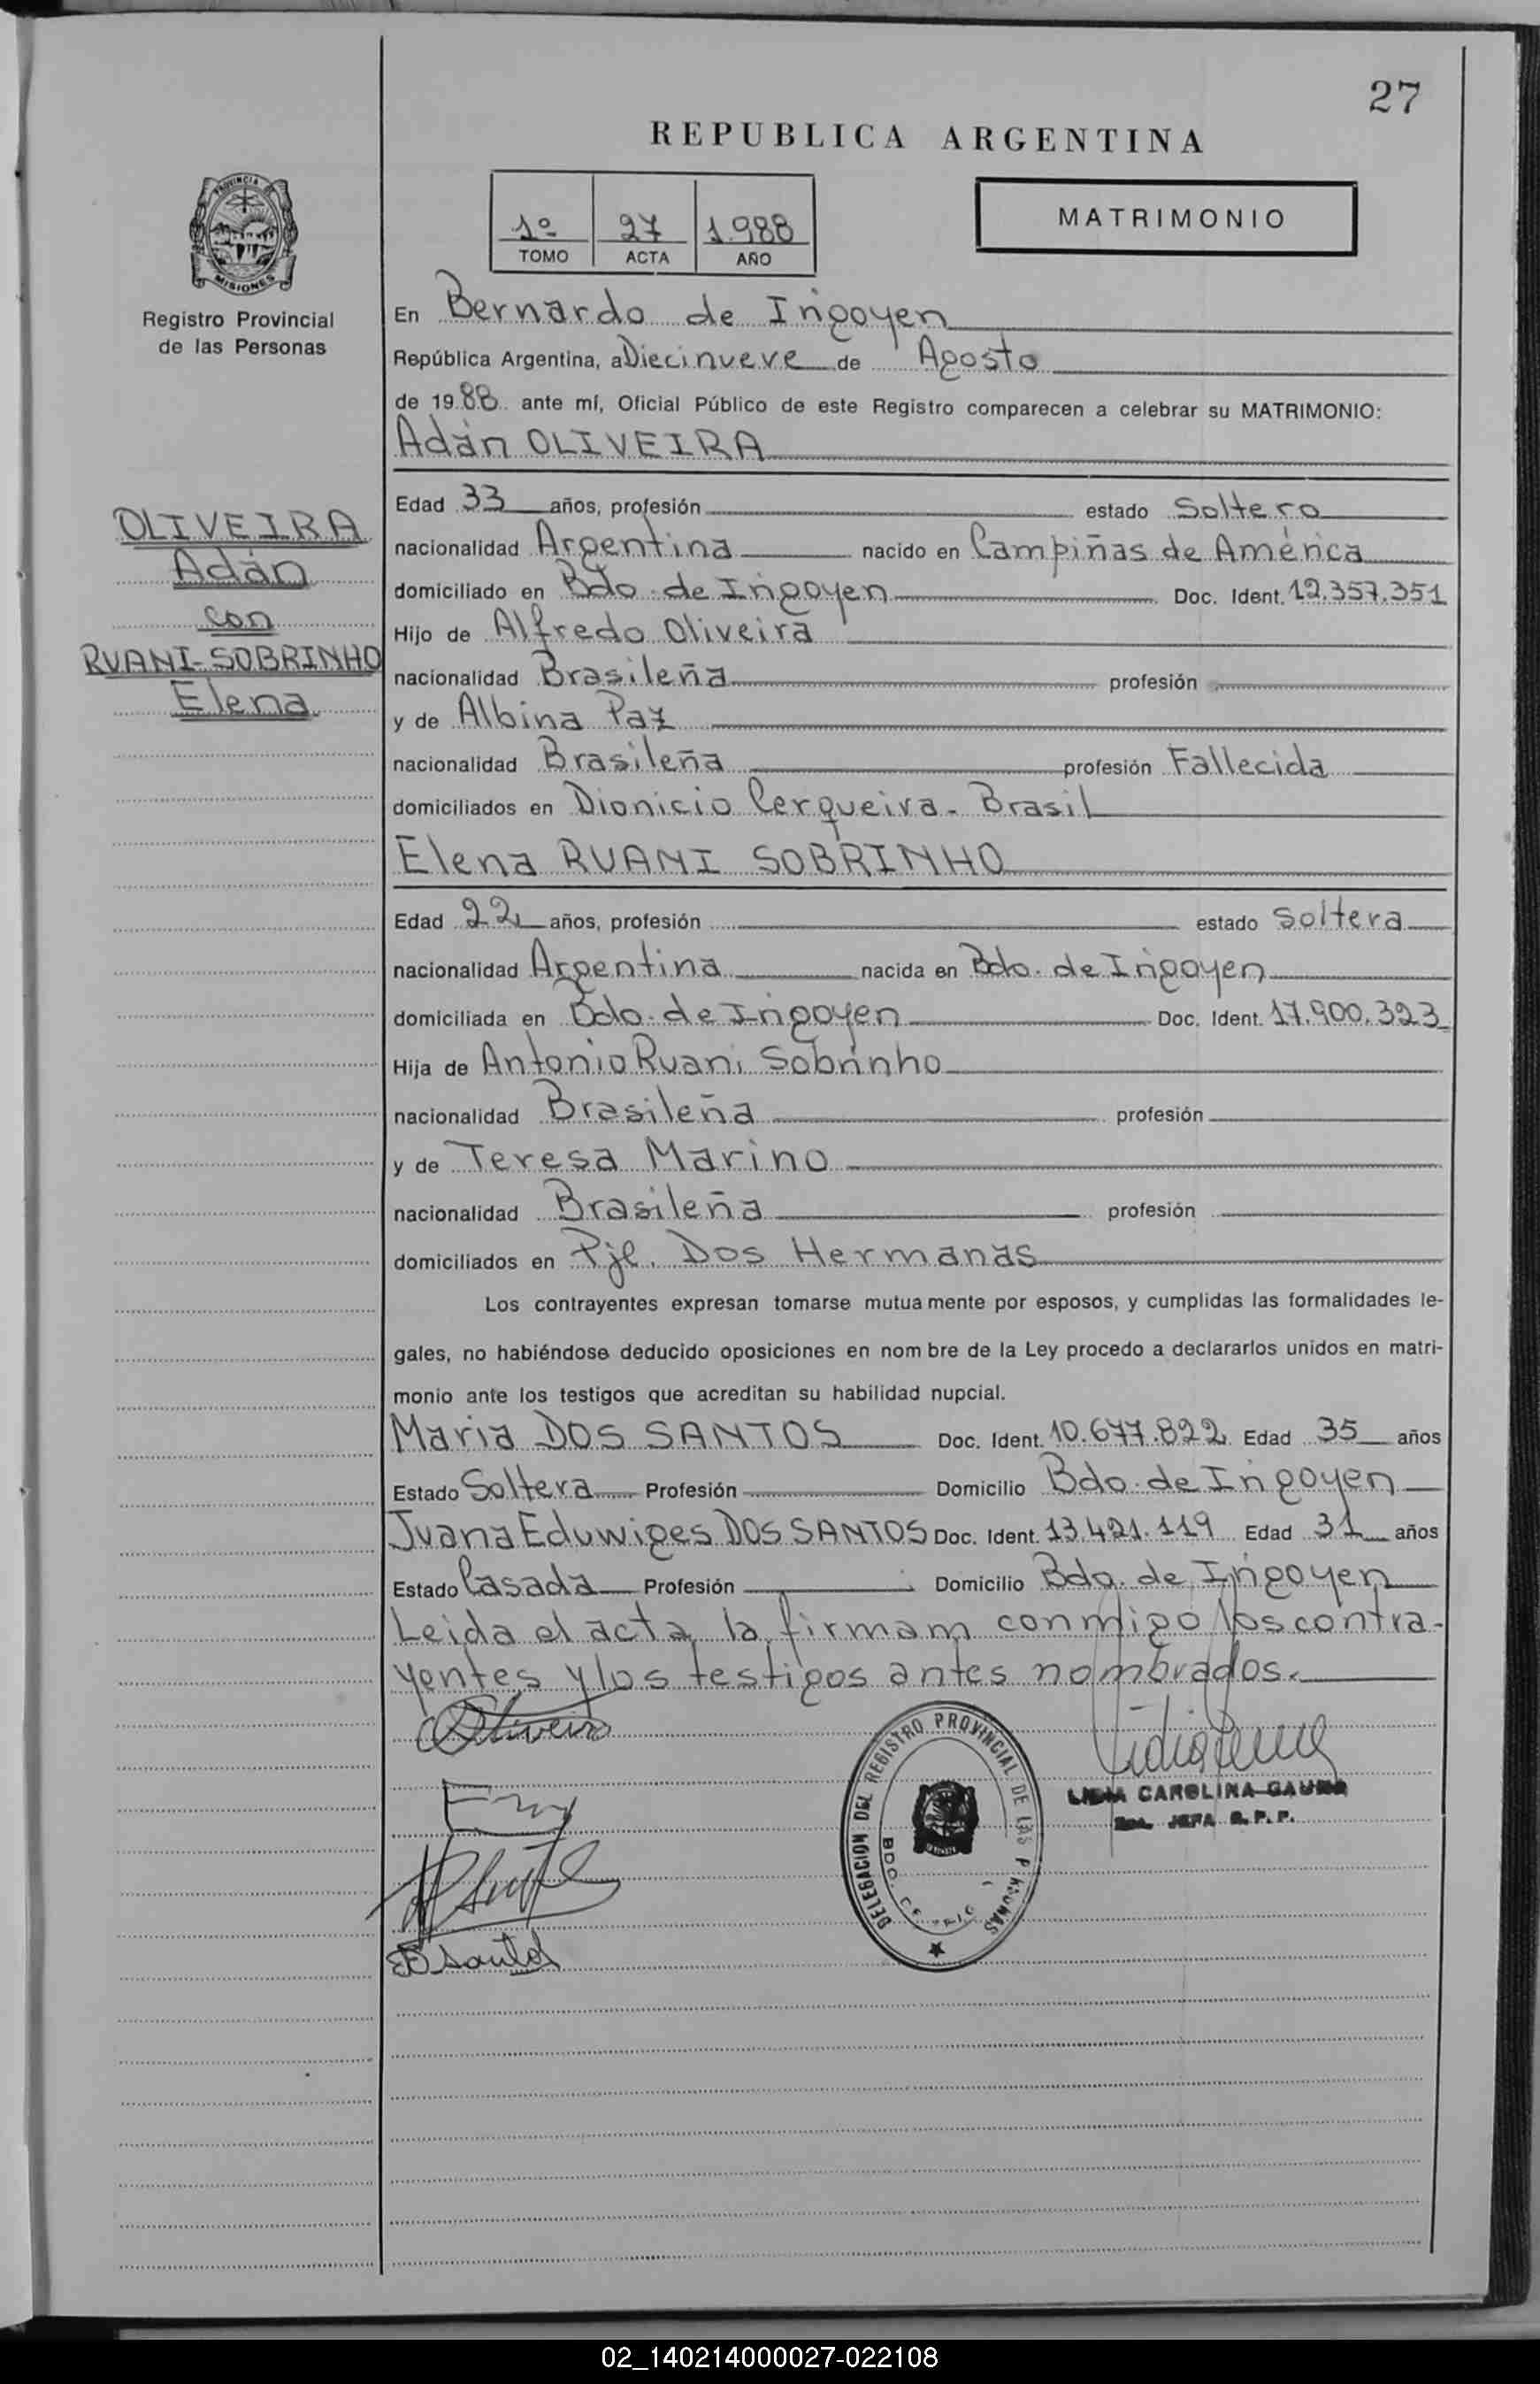 27
REPUBLICA ARGENTINA
1º 27 1.988
TOMO ACTA AÑO
MATRIMONIO
PROVINCIA DE
MISIONES
Registro Provincial
de las Personas
En Bernardo de Irigoyen
República Argentina, a Diecinueve de Agosto
de 19 88 ante mí, Oficial Público de este Registro comparecen a celebrar su MATRIMONIO:
Adán OLIVEIRA
OLIVEIRA
Adán
con
RUANI-SOBRINHO
Elena
Edad 33 años, profesión estado Soltero
nacionalidad Argentina nacido en Campiñas de América
domiciliado en Bdo. de Irigoyen Doc. Ident. 12.357.351
Hijo de Alfredo Oliveira
nacionalidad Brasileña profesión
y de Albina Paz
nacionalidad Brasileña profesión Fallecida
domiciliados en Dionicio Cerqueira - Brasil
Elena RUANI SOBRINHO
Edad 22 años, profesión estado Soltera
nacionalidad Argentina nacida en Bdo. de Irigoyen
domiciliada en Bdo. de Irigoyen Doc. Ident. 17.900.323
Hija de Antonio Ruani Sobrinho
nacionalidad Brasileña profesión
y de Teresa Marino
nacionalidad Brasileña profesión
domiciliados en Pje. Dos Hermanas
Los contrayentes expresan tomarse mutuamente por esposos, y cumplidas las formalidades le-
gales, no habiéndose deducido oposiciones en nombre de la Ley procedo a declararlos unidos en matri-
monio ante los testigos que acreditan su habilidad nupcial.
Maria DOS SANTOS Doc. Ident. 10.677.822 Edad 35 años
Estado Soltera Profesión Domicilio Bdo. de Irigoyen
Juana Eduwiges DOS SANTOS Doc. Ident. 13.421.119 Edad 31 años
Estado Casada Profesión Domicilio Bdo. de Irigoyen
Leida el acta la firmam conmigo los contra-
yentes y los testigos antes nombrados.
Oliveira
DELEGACION DEL REGISTRO PROVINCIAL DE LAS PERSONAS
BDO. DE IRIG
LIDIA CAROLINA
JEFA R. P. P.
02_140214000027-022108